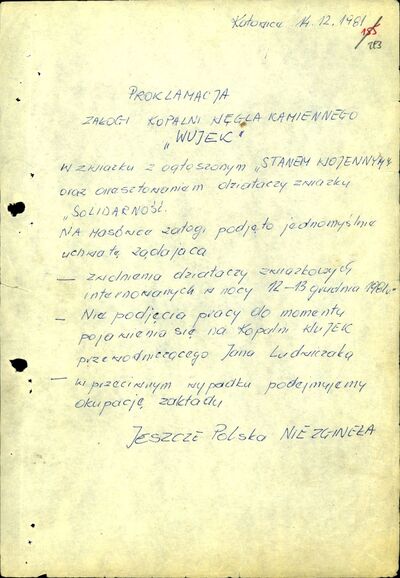 Katowice 14.12.1981
155
283
PROKLAMACJA
ZAŁOGI KOPALNI WĘGLA KAMIENNEGO
„WUJEK"
W związku z ogłoszonym „STANEM WOJENNYM"
oraz aresztowaniem działaczy związku
„SOLIDARNOŚĆ.
NA MASÓWCE załogi podjęto jednomyślnie
uchwałę żądająca
— zwolnienia działaczy związkowych
internowanych w nocy 12-13 grudnia 1981r.
— Nie podjęcia pracy do momentu
pojawienia się na Kopalni WUJEK
przewodniczącego Jana Ludwiczaka
— w przeciwnym wypadku podejmujemy
okupację zakładu
JESZCZE Polska NIE ZGINĘŁA